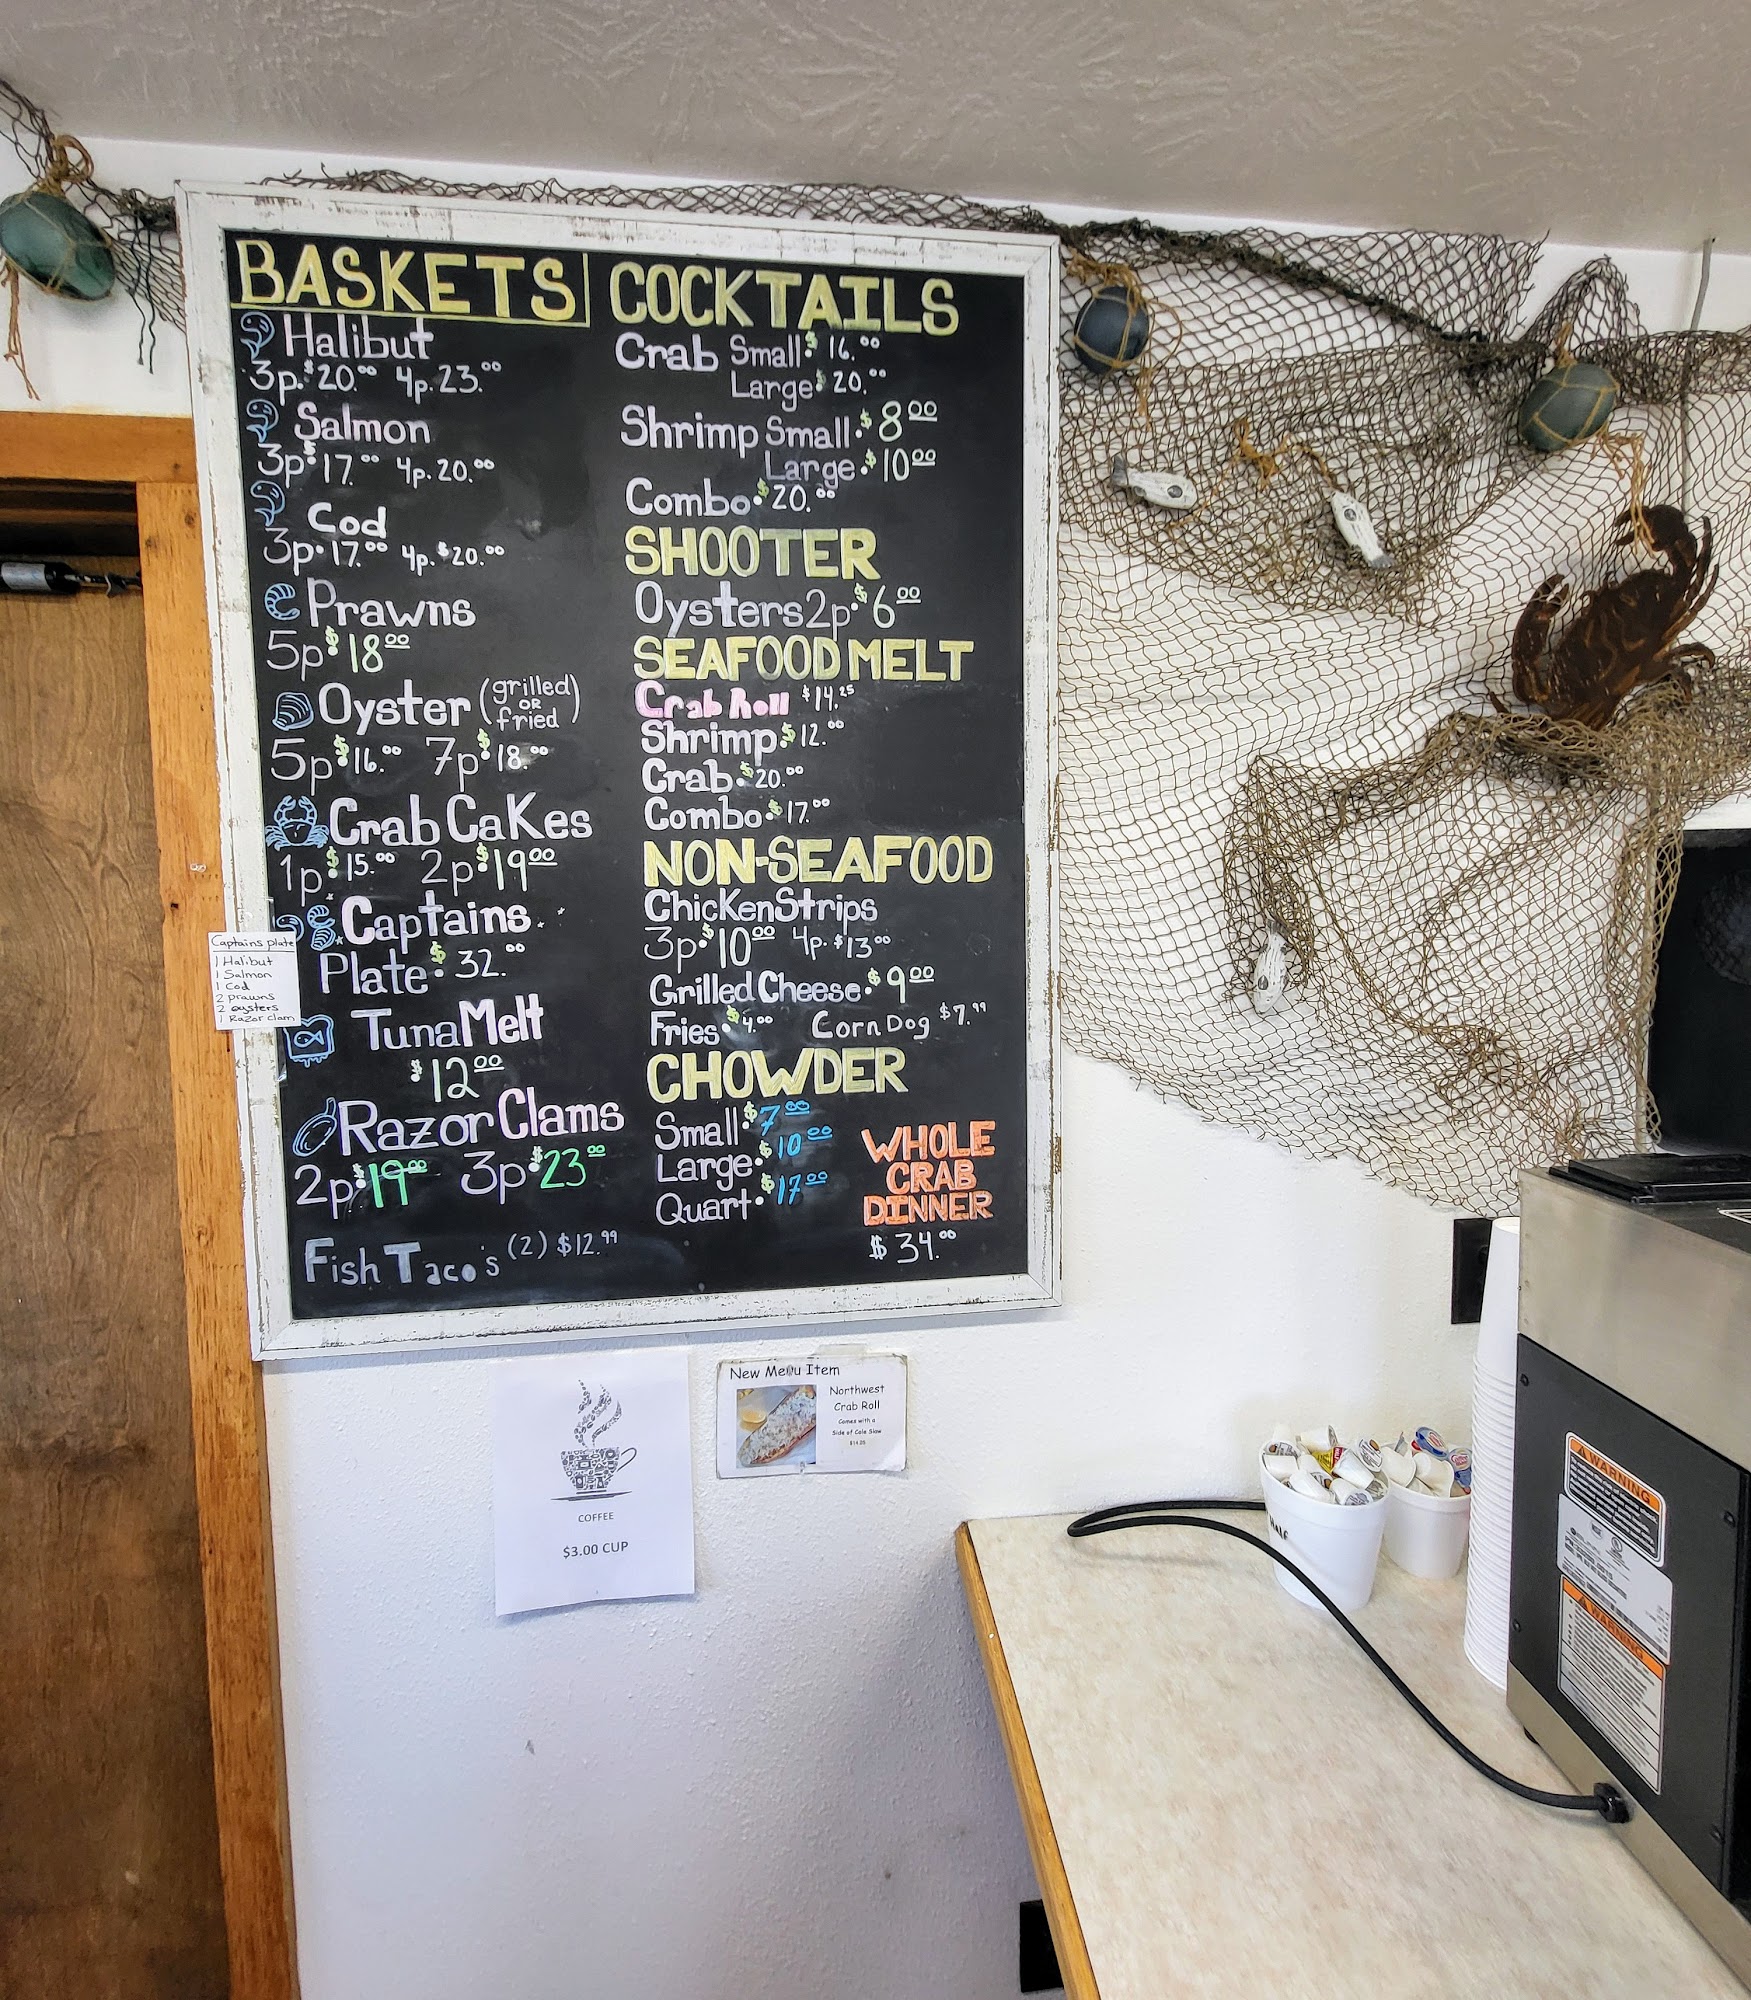 BASKETS
Halibut
3p. $20.00 4p. 23.00
Salmon
3p. $17.00 4p. 20.00
Cod
3p. 17.00 4p. $20.00
Prawns
5p. $18.00
Oyster (grilled OR fried)
5p. $16.00 7p. $18.00
Crab Cakes
1p. $15.00 2p. $19.00
Captains
Plate. $32.00
Tuna Melt
$12.00
Razor Clams
2p. $19.00 3p. $23.00
Fish Taco's (2) $12.99
COCKTAILS
Crab Small $16.00
Large $20.00
Shrimp Small. $8.00
Large. $10.00
Combo. $20.00
SHOOTER
Oysters 2p. $6.00
SEAFOOD MELT
Crab Roll $14.25
Shrimp. $12.00
Crab. $20.00
Combo. $17.00
NON-SEAFOOD
Chicken Strips
3p. $10.00 4p. $13.00
Grilled Cheese. $9.00
Fries. $4.00 Corn Dog $7.99
CHOWDER
Small. $7.00
Large. $10.00
Quart. $17.00
WHOLE
CRAB
DINNER
$34.00
Captains plate
1 Halibut
1 Salmon
1 Cod
2 prawns
2 oysters
1 Razor clam
COFFEE
$3.00 CUP
New Menu Item
Northwest
Crab Roll
Comes with a
Side of Cole Slaw
Half
WARNING
WARNING